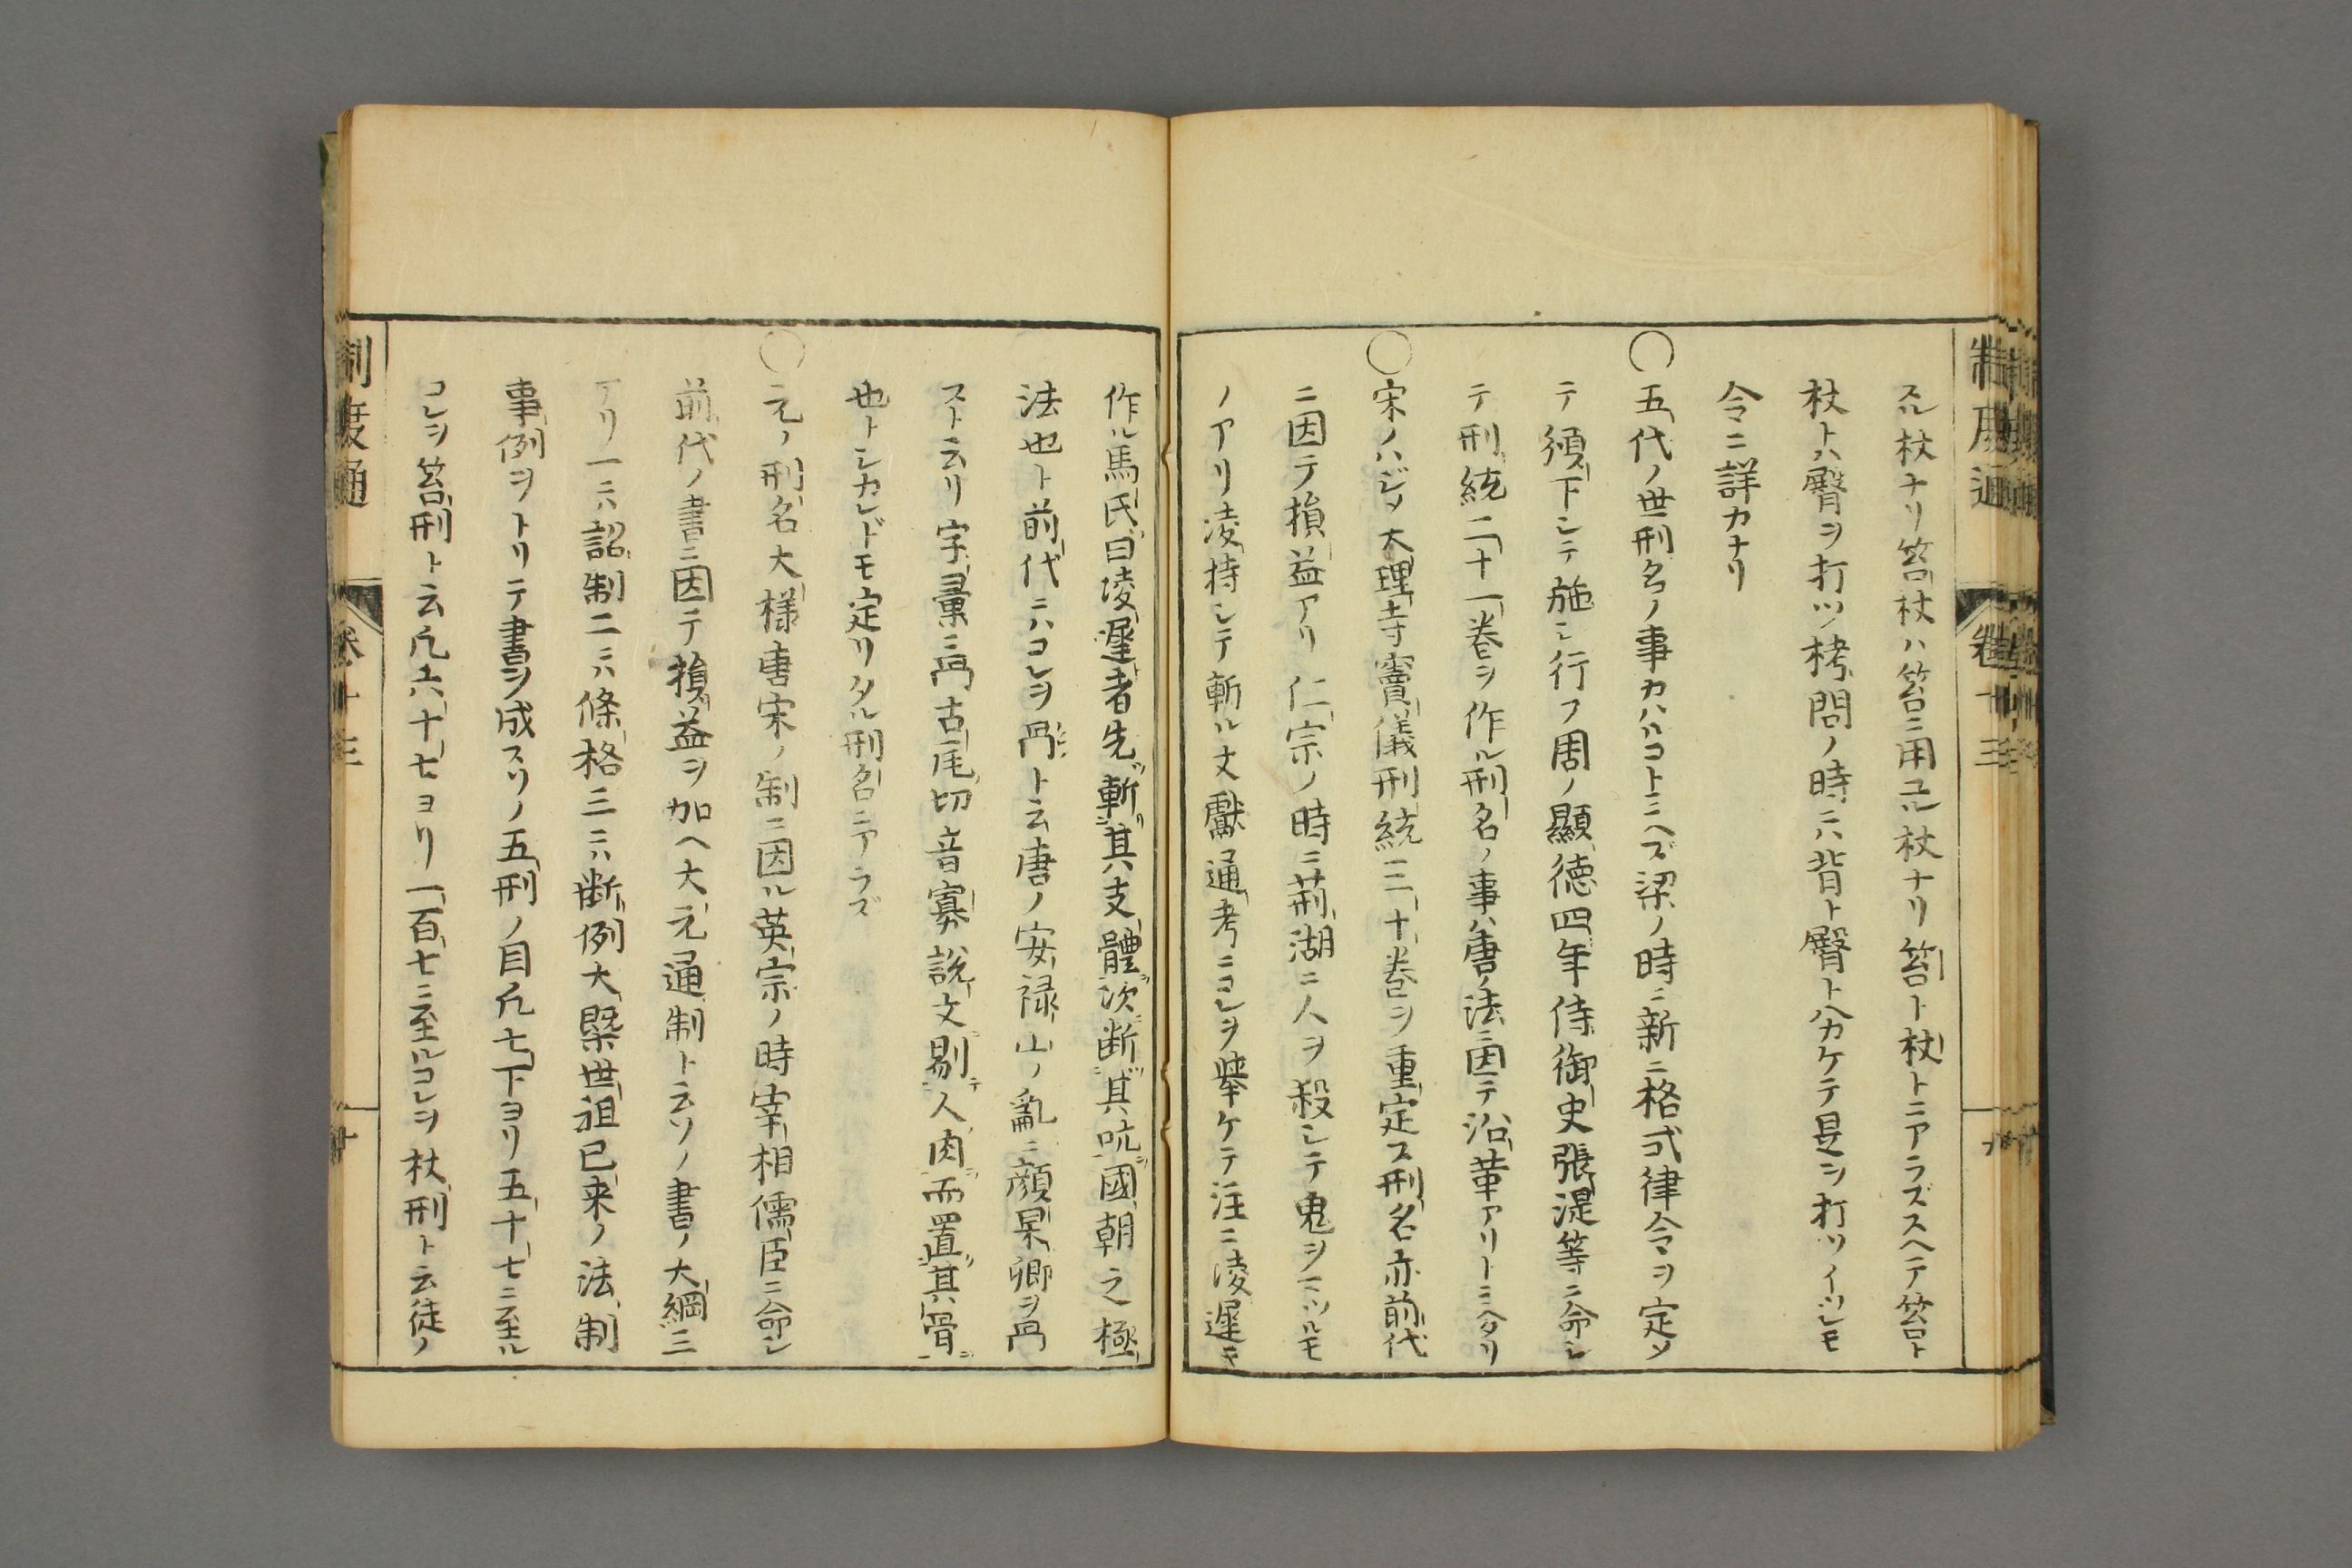 制度通　卷十三　九
スル杖ナリ笞杖ハ笞ニ用ユル杖ナリ笞ト杖トニアラズスヘテ笞ト
杖トハ臀ヲ打ツ拷問ノ時ニハ背ト臀トヘカケテ是ヲ打ツイツレモ
令ニ詳カナリ
〇五代ノ世刑名ノ事カハルコトミヘズ梁ノ時ニ新ニ格式律令ヲ定メ
テ須下シテ施シ行フ周ノ顯徳四年侍御史張湜等ニ命シ
テ刑統二十一巻ヲ作ル刑名ノ事ハ唐ノ法ニ因テ沿革アリトミヘタリ
〇宋ノハジメ大理寺竇儀刑統三十巻ヲ重定ス刑名亦前代
ニ因テ損益アリ仁宗ノ時ニ荊湖ニ人ヲ殺シテ鬼ヲミツルモ
ノアリ淩持シテ斬ル文獻通考ニコレヲ舉ケテ注ニ淩遲キ
作ル馬氏曰陵遲者先斬其支體次断其吭國朝之極
法也ト前代ニハコレヲ冎ト云唐ノ安禄山ノ亂ニ顔杲卿ヲ冎
ストニ云リ字彙ニ冎古瓦切音寡説文剔人肉而置其骨
也トシカレドモ定リタル刑名ニアラズ
〇元ノ刑名大様唐宋ノ制ニ因ル英宗ノ時宰相儒臣ニ命シ
前代ノ書ニ因テ損益ヲ加ヘ大元通制ト云ソノ書ノ大綱三
アリ一ニハ詔制二ニハ條格三ニハ断例大槩世祖已来ノ法制
事例ヲトリテ書ヲ成スソノ五刑ノ目凢七下ヨリ五十七ニ至ル
コレヲ笞刑ト云凢六十七ヨリ一百七ニ至ルコレヲ杖刑ト云徒ノ
制度通　卷十三　十